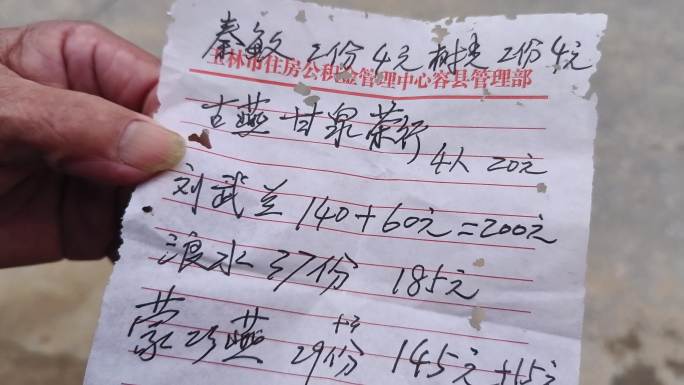 秦敏 2份 4元 树考 2份 4元
玉林市住房公积金管理中心容县管理部
古燕 甘泉茶行 4人 20元
刘武兰 140+60元=200元
浪水 37份 185元
+3
蒙巧燕 29份 145元+15元